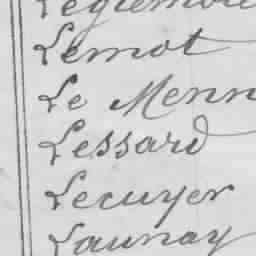 Lemot
Le Menn
Lessard
Lecuyer
Launay